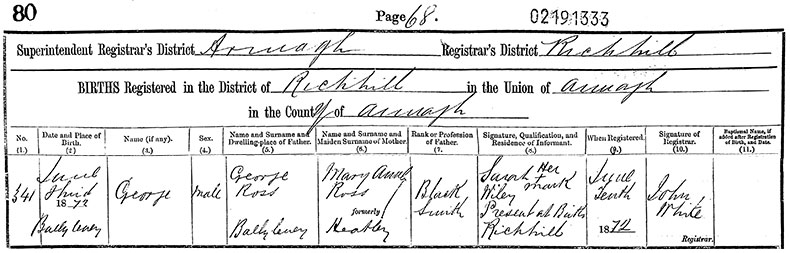 80
Page 68.
02191333
Superintendent Registrar's District Armagh Registrar's District Richhill
BIRTHS Registered in the District of Richhill in the Union of Armagh
in the County of Armagh
No. (1.) Date and Place of Birth. (2.) Name (if any). (3.) Sex. (4.) Name and Surname and Dwelling-place of Father. (5.) Name and Surname and Maiden Surname of Mother. (6.) Rank or Profession of Father. (7.) Signature, Qualification, and Residence of Informant. (8.) When Registered. (9.) Signature of Registrar. (10.) Baptismal Name, if added after Registration of Birth, and Date. (11.)
341
June
Third
1872
Ballyleney
George
male
George
Ross
Ballyleney
Mary Anne
Ross
formerly
Heatley
Black
Smith
Susan Her
Wiley + mark
Present at Birth
Richhill
June
Tenth
1872
John
White
Registrar.